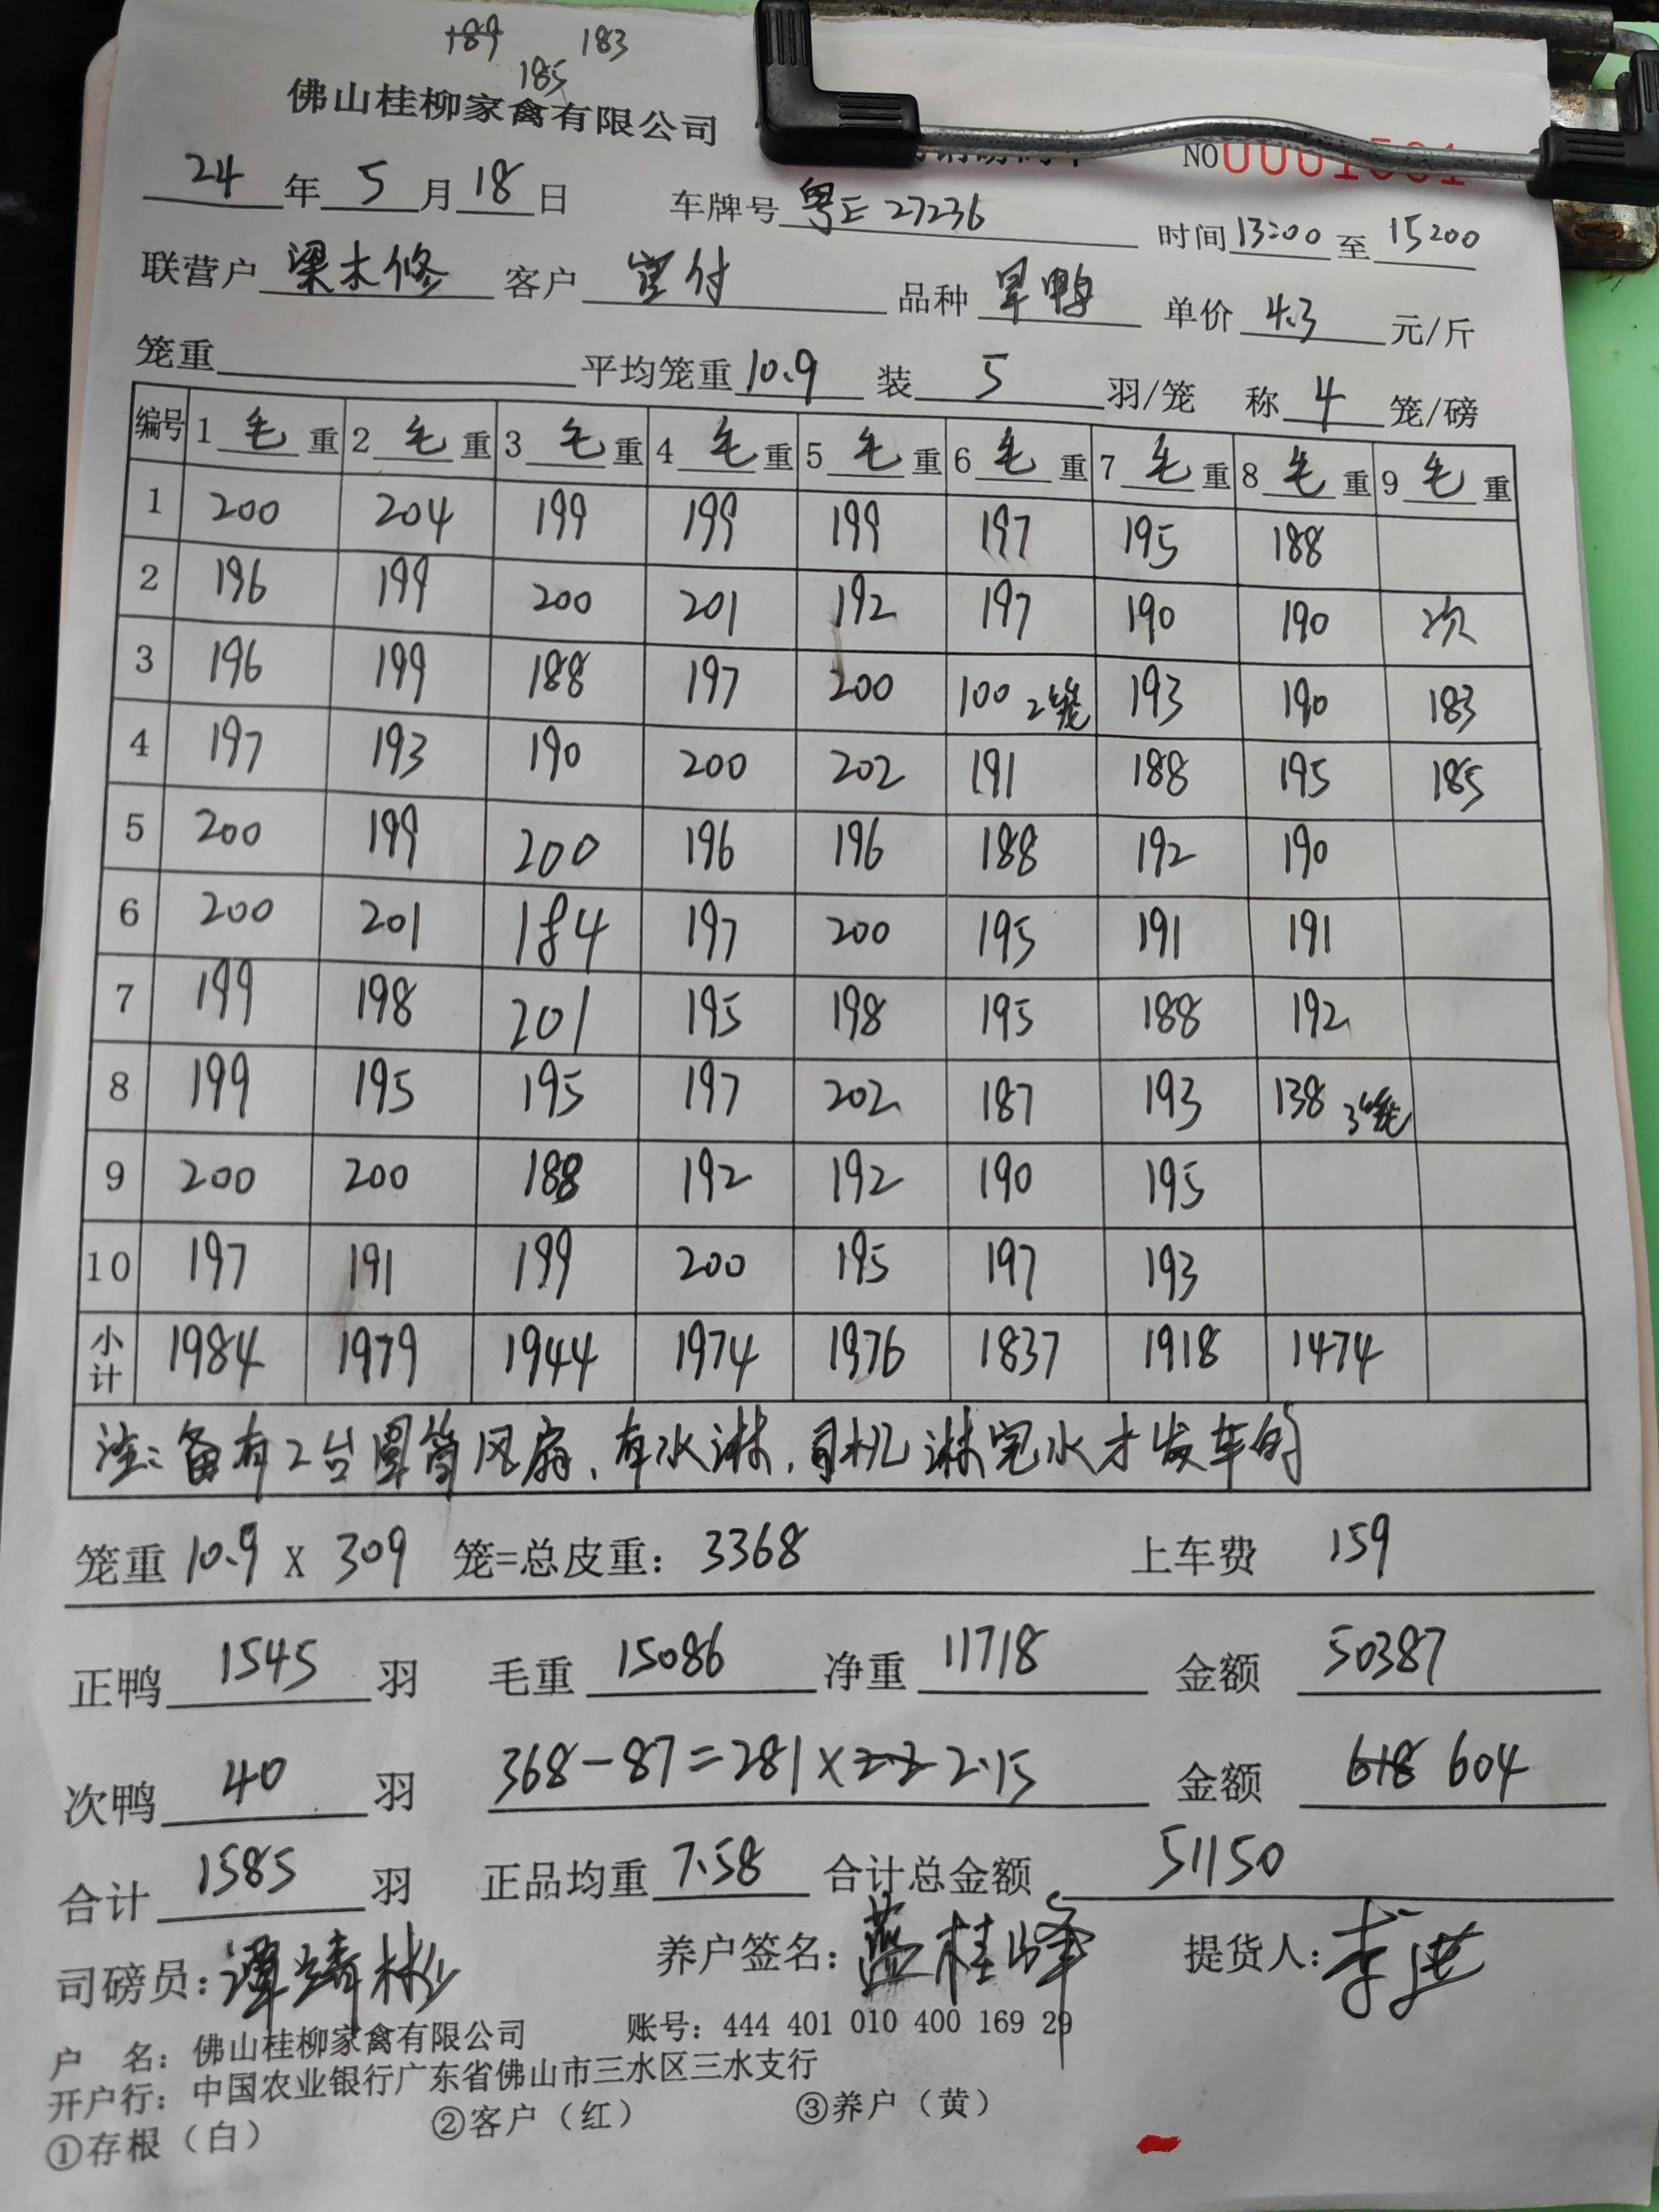 189 183
185
佛山桂柳家禽有限公司
NO 0001561
24 年 5 月 18 日 车牌号 粤E 27236 时间 13:00 至 15:00
联营户 梁木修 客户 宝付 品种 旱鸭 单价 4.3 元/斤
笼重 平均笼重 10.9 装 5 羽/笼 称 4 笼/磅
编号 1 毛 重 2 毛 重 3 毛 重 4 毛 重 5 毛 重 6 毛 重 7 毛 重 8 毛 重 9 毛 重
1 200 204 199 199 199 197 195 188
2 196 199 200 201 192 197 190 190 次
3 196 199 188 197 200 100 2笼 193 190 183
4 197 193 190 200 202 191 188 195 185
5 200 199 200 196 196 188 192 190
6 200 201 184 197 200 195 191 191
7 199 198 201 195 198 195 188 192
8 199 195 195 197 202 187 193 138 3笼
9 200 200 188 192 192 190 195
10 197 191 199 200 195 197 193
小计 1984 1979 1944 1974 1976 1837 1918 1474
注:备有2台圆筒风扇、有水淋,司机淋完水才发车的
笼重 10.9 X 309 笼=总皮重: 3368 上车费 159
正鸭 1545 羽 毛重 15086 净重 11718 金额 50387
次鸭 40 羽 368-87=281×2.2 2.15 金额 618 604
合计 1585 羽 正品均重 7.58 合计总金额 51150
司磅员:谭靖彬 养户签名:蓝桂峰 提货人:李
户 名:佛山桂柳家禽有限公司 账号:444 401 010 400 169 29
开户行:中国农业银行广东省佛山市三水区三水支行
①存根(白) ②客户(红) ③养户(黄)